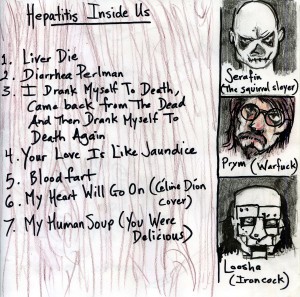 Hepatitis Inside Us
1. Liver Die
2. Diarrhea Perlman
3. I Drank Myself To Death,
Came back from The Dead
And Then Drank Myself To
Death Again
4. Your Love Is Like Jaundice
5. Bloodfart
6. My Heart Will Go On (Céline Dion
cover)
7. My Human Soup (You Were
Dalicious)
Serafin
(The squirrel slayer)
Prym (Warfuck)
Laosha
(Ironcock)